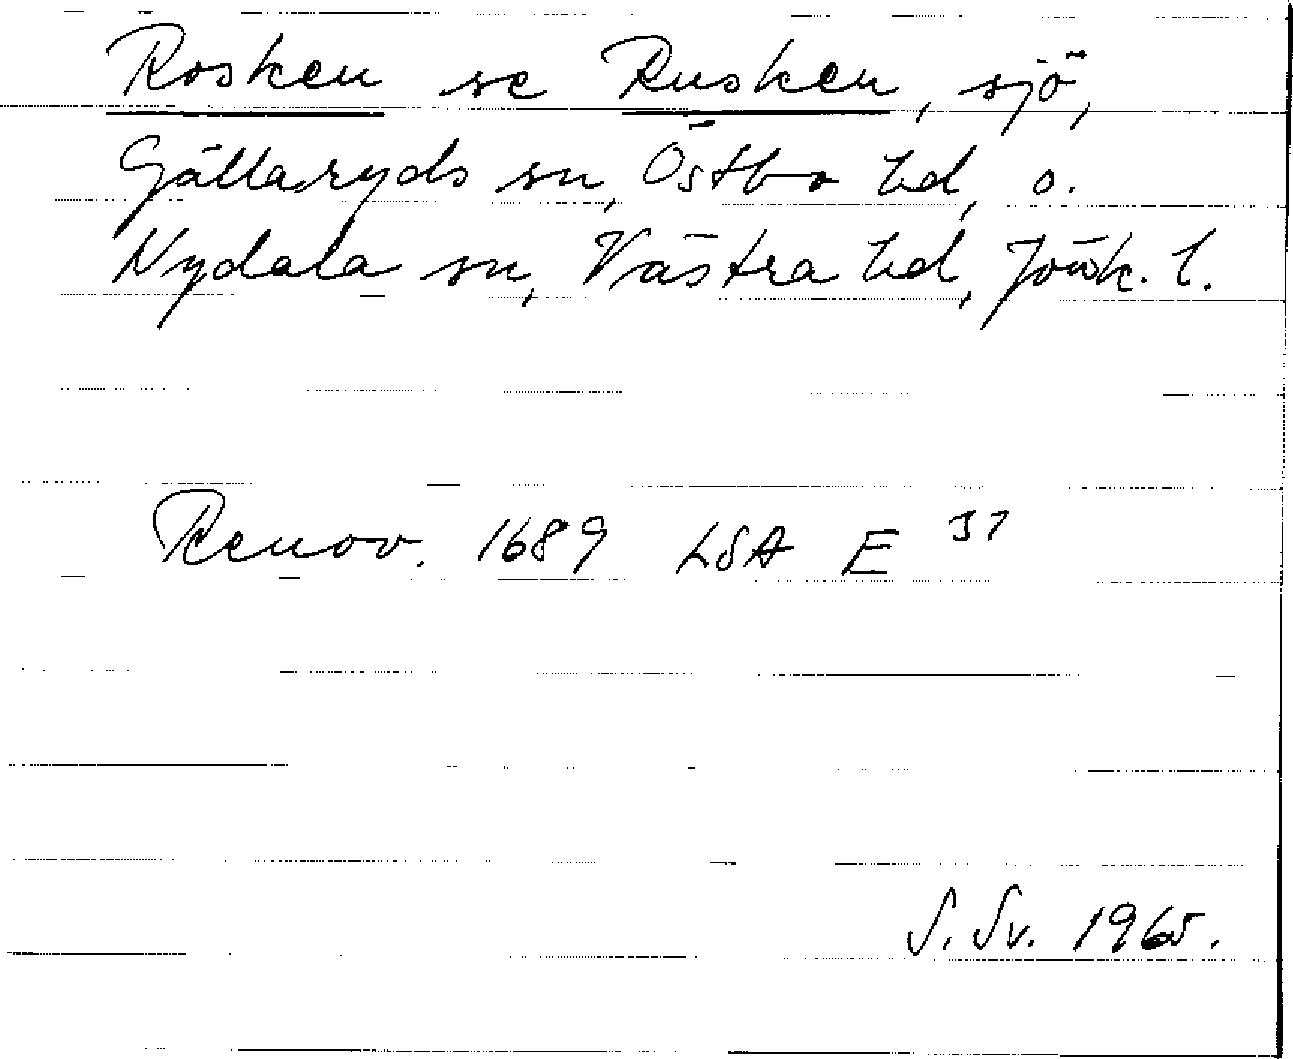 Rosken se Rusken, sjö,
Gällaryds sn, Östbo hd, o.
Nydala sn, Västra hd, Jönk. l.
Renov. 1689 LSA E 37
S. Sv. 1965.